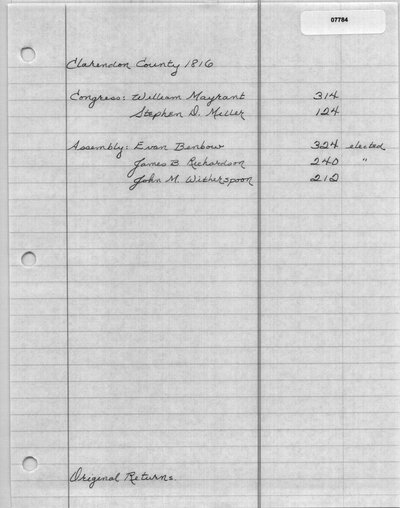 07784
Clarendon County 1816
Congress: William Mayrant 314
Stephen D. Miller 124
Assembly: Evan Benbow 324 elected
James B Richardson 240 "
John M. Witherspoon 212
Original Returns.